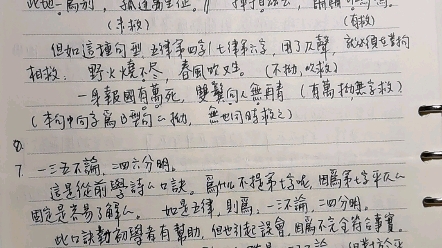 此地一為別，孤蓬萬里征。
(未救) (有救)
但如這種句型，五律第四字/七律第六字，用了仄聲，就必須在對句
相救. 野火燒不尽，春風吹又生。(不拗，吹救)
一身報國有萬死，雙鬢向人無再青 (有萬拗無字救)
(本句中向字為B型句之拗，無也同時救之)
7. 一三五不論，二四六分明。
這是從前學詩之口訣。為什么不提第七字呢，因為第七字平仄已
固定是容易了解么。 如是五律，則為，一三不論，二四分明。
此口訣動初學者有幫助，但也引起誤會，因為不完全符合事實。